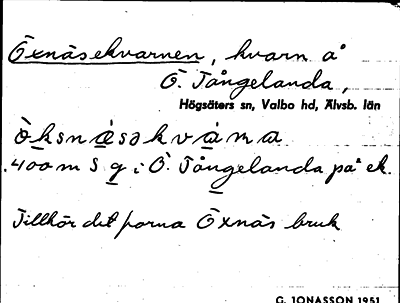 Öxnäsekvarnen, kvarn å
Ö. Tångelanda,
Högsäters sn, Valbo hd, Älvsb. län
öksnäsəkvàṇa
400 m S g i Ö. Tångelanda på ek.
Tillhör det forna Öxnäs bruk
G. JONASSON 1951